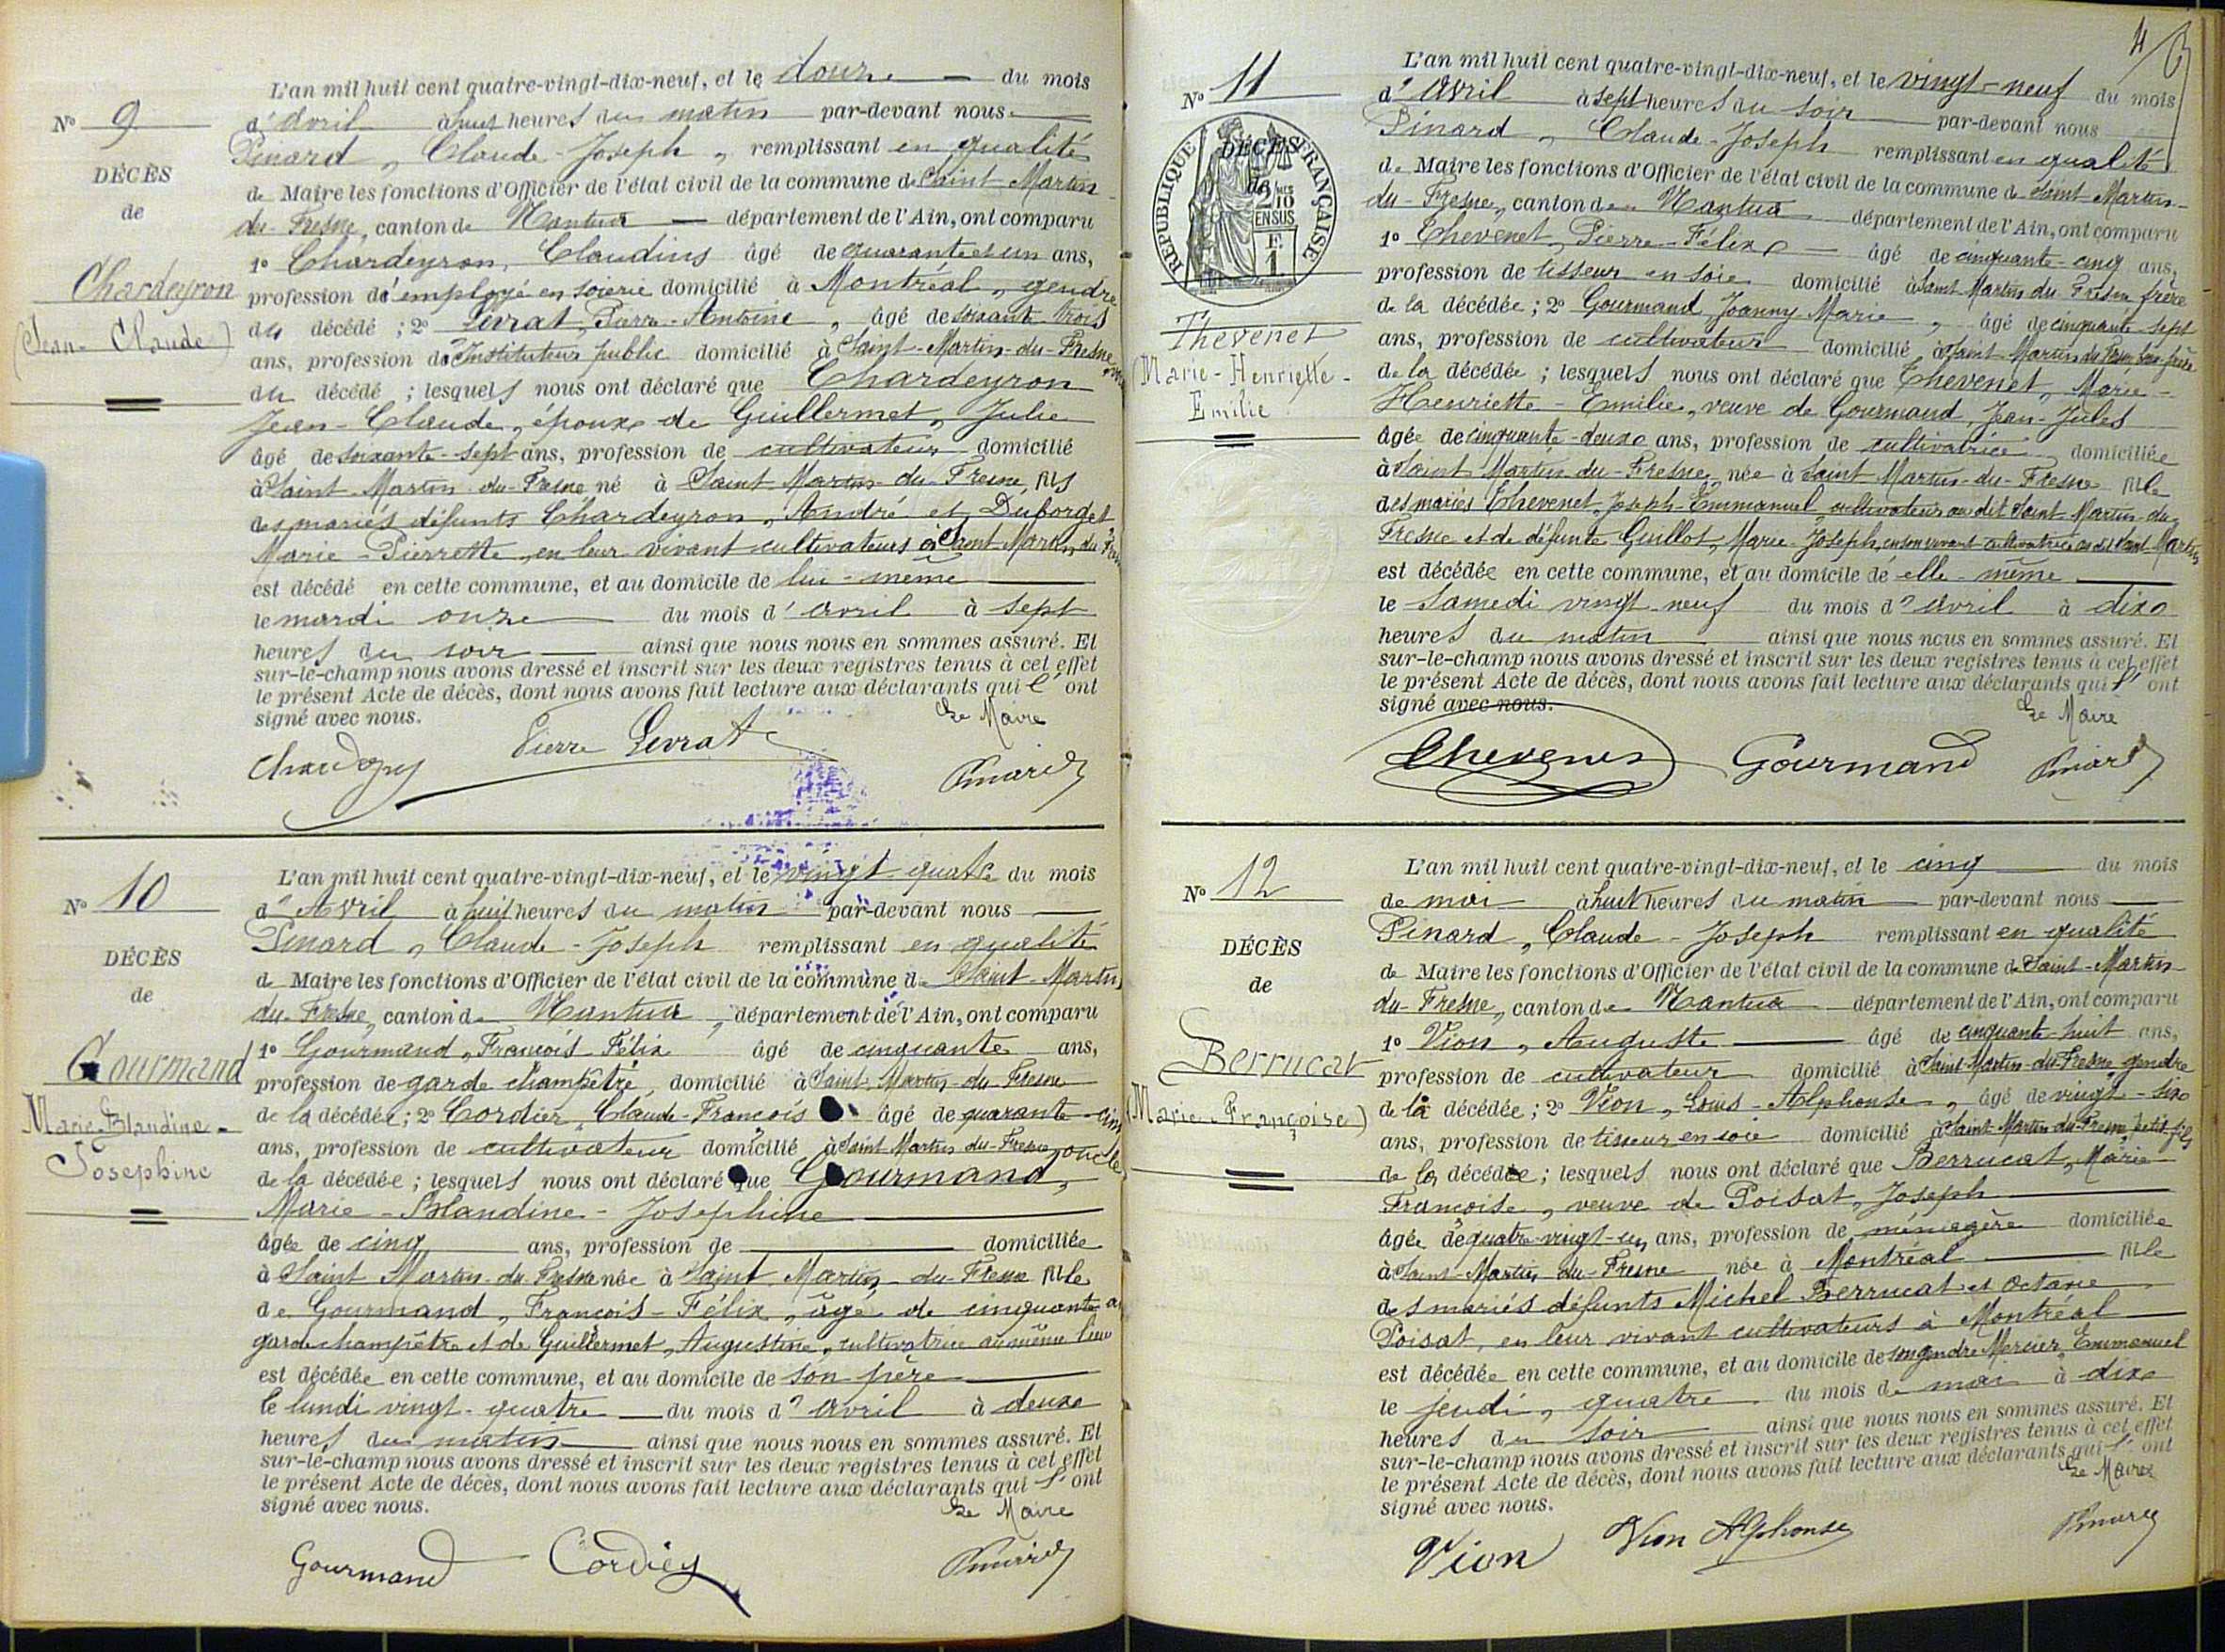 N° 9
DÉCÈS
de
Chardeyron
(Jean-Claude)
L'an mil huit cent quatre-vingt-dix-neuf, et le douze du mois
d'avril à huit heures du matin par-devant nous
Pinard, Claude-Joseph, remplissant en qualité
de Maire les fonctions d'Officier de l'état civil de la commune de Saint-Martin-
du-Fresne, canton de Nantua département de l'Ain, ont comparu
1° Chardeyron, Claudius âgé de quarante et un ans,
profession d'employé en soierie domicilié à Montréal, gendre
du décédé ; 2° Levrat, Pierre-Antoine, âgé de soixante trois
ans, profession d'Instituteur public domicilié à Saint-Martin-du-Fresne
du décédé ; lesquels nous ont déclaré que Chardeyron
Jean-Claude, époux de Guillermet, Julie
âgé de soixante-sept ans, profession de cultivateur domicilié
à Saint-Martin-du-Fresne né à Saint-Martin-du-Fresne, fils
des mariés défunts Chardeyron, André et Duborget
Marie-Pierrette, en leur vivant cultivateurs à Saint-Martin du
est décédé en cette commune, et au domicile de lui-même
le mardi onze du mois d'avril à sept
heures du soir ainsi que nous nous en sommes assuré. Et
sur-le-champ nous avons dressé et inscrit sur les deux registres tenus à cet effet
le présent Acte de décès, dont nous avons fait lecture aux déclarants qui l'ont
signé avec nous. Le Maire
Pierre Levrat
Pinard
N° 10
DÉCÈS
de
Gourmand
Marie-Blandine-
Josephine
L'an mil huit cent quatre-vingt-dix-neuf, et le vingt quatre du mois
d'Avril à huit heures du matin par-devant nous
Pinard, Claude-Joseph remplissant en qualité
de Maire les fonctions d'Officier de l'état civil de la commune de Saint-Martin
du-Fresne, canton de Nantua, département de l'Ain, ont comparu
1° Gourmand, François Félix âgé de cinquante ans,
profession de garde champêtre, domicilié à Saint-Martin-du-Fresne
de la décédée ; 2° Cordier, Claude-François âgé de quarante-cinq
ans, profession de cultivateur domicilié à Saint Martin du-Fresne, oncle
de la décédée ; lesquels nous ont déclaré que Gourmand,
Marie-Blandine-Josephine
âgée de cinq ans, profession de domiciliée
à Saint Martin-du-Fresne née à Saint Martin-du-Fresne fille
de Gourmand, François-Félix, âgé de cinquante
garde champêtre et de Guillermet, Augustine, cultivatrice au même lieu
est décédée en cette commune, et au domicile de son père
le lundi vingt-quatre du mois d'avril à deux
heures du matin ainsi que nous nous en sommes assuré. Et
sur-le-champ nous avons dressé et inscrit sur les deux registres tenus à cet effet
le présent Acte de décès, dont nous avons fait lecture aux déclarants qui l'ont
signé avec nous. Le Maire
Gourmand Cordier Pinard
4
N° 11
RÉPUBLIQUE FRANÇAISE
2/10 EN SUS
F. 1
DÉCÈS
de
Thevenet
Marie-Henriette-
Emilie
L'an mil huit cent quatre-vingt-dix-neuf, et le vingt-neuf du mois
d'avril à sept heures du soir par-devant nous
Pinard, Claude-Joseph remplissant en qualité
de Maire les fonctions d'Officier de l'état civil de la commune de Saint Martin-
du-Fresne, canton de Nantua département de l'Ain, ont comparu
1° Thevenet, Pierre-Félix âgé de cinquante-cinq ans,
profession de tisseur en soie domicilié à Saint Martin du Fresne frère
de la décédée ; 2° Gourmand, Joanny Marie, âgé de cinquante sept
ans, profession de cultivateur domicilié à Saint Martin du Fresne, beau-frère
de la décédée ; lesquels nous ont déclaré que Thevenet, Marie-
Henriette-Emilie, veuve de Gourmand, Jean-Jules
âgée de cinquante-deux ans, profession de cultivatrice, domiciliée
à Saint Martin du-Fresne, née à Saint Martin-du-Fresne fille
des mariés Thevenet, Joseph-Emmanuel, cultivateur au dit Saint Martin-du-
Fresne et de défunte Guillot, Marie-Joseph, en son vivant cultivatrice au dit Saint Martin
est décédée en cette commune, et au domicile de elle-même
le Samedi vingt neuf du mois d'avril à dix
heures du matin ainsi que nous nous en sommes assuré. Et
sur-le-champ nous avons dressé et inscrit sur les deux registres tenus à cet effet
le présent Acte de décès, dont nous avons fait lecture aux déclarants qui l'ont
signé avec nous. Le Maire
Thevenet Gourmand Pinard
N° 12
DÉCÈS
de
Berrucat
(Marie-Françoise)
L'an mil huit cent quatre-vingt-dix-neuf, et le cinq du mois
de mai à huit heures du matin par-devant nous
Pinard, Claude-Joseph remplissant en qualité
de Maire les fonctions d'Officier de l'état civil de la commune de Saint-Martin-
du-Fresne, canton de Nantua département de l'Ain, ont comparu
1° Vion, Auguste âgé de cinquante-huit ans,
profession de cultivateur domicilié à Saint-Martin-du-Fresne gendre
de la décédée ; 2° Vion, Louis-Alphonse, âgé de vingt-six
ans, profession de tisseur en soie domicilié à Saint-Martin du-Fresne, petit-fils
de la décédée ; lesquels nous ont déclaré que Berrucat, Marie
Françoise, veuve de Poisat, Joseph
âgée de quatre-vingt-un ans, profession de ménagère domiciliée
à Saint-Martin-du-Fresne née à Montréal fille
des mariés défunts Michel Berrucat et Octavie
Poisat, en leur vivant cultivateurs à Montréal
est décédée en cette commune, et au domicile de son gendre Mercier, Emmanuel
le jeudi, quatre du mois de mai à dix
heures du soir ainsi que nous nous en sommes assuré. Et
sur-le-champ nous avons dressé et inscrit sur les deux registres tenus à cet effet
le présent Acte de décès, dont nous avons fait lecture aux déclarants qui l'ont
signé avec nous. Le Maire
Vion Vion Alphonse Pinard